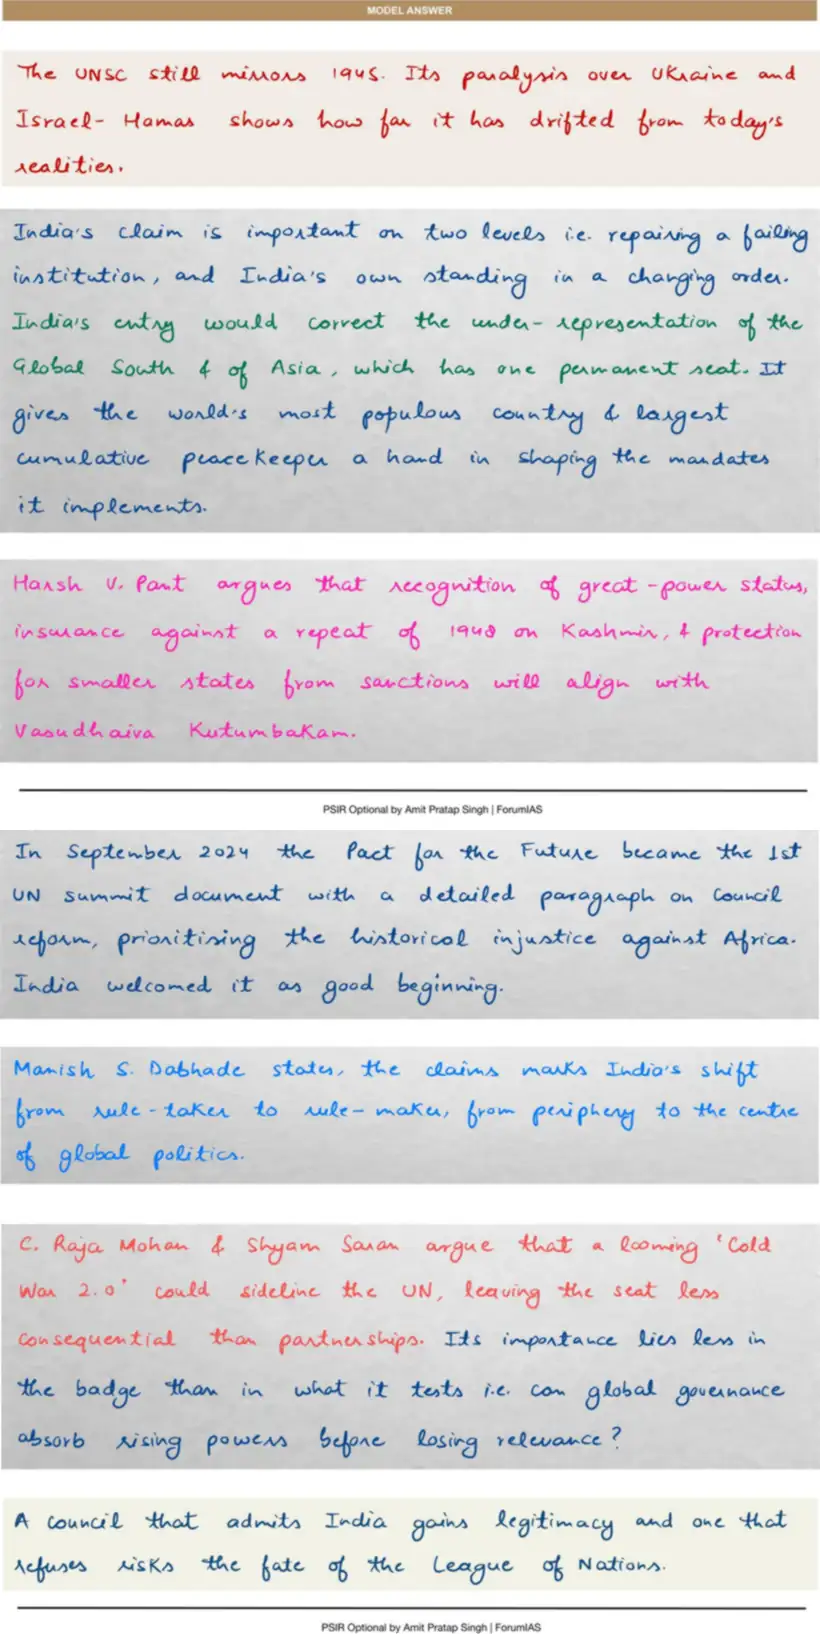 MODEL ANSWER
The UNSC still mirrors 1945. Its paralysis over Ukraine and
Israel- Hamas shows how far it has drifted from today's
realities.
India's claim is important on two levels i.e. repairing a failing
institution, and India's own standing in a changing order.
India's entry would correct the under-representation of the
Global South & of Asia, which has one permanent seat. It
gives the world's most populous country & largest
cumulative peacekeeper a hand in shaping the mandates
it implements.
Harsh V. Pant argues that recognition of great-power status,
insurance against a repeat of 1948 on Kashmir, & protection
for smaller states from sanctions will align with
Vasudhaiva Kutumbakam.
PSIR Optional by Amit Pratap Singh | ForumIAS
In September 2024 the Pact for the Future became the 1st
UN summit document with a detailed paragraph on Council
reform, prioritising the historical injustice against Africa.
India welcomed it as good beginning.
Manish S. Dabhade states, the claims marks India's shift
from rule-taker to rule-maker, from periphery to the centre
of global politics.
C. Raja Mohan & Shyam Saran argue that a looming 'Cold
War 2.0' could sideline the UN, leaving the seat less
consequential than partnerships. Its importance lies less in
the badge than in what it tests i.e. can global governance
absorb rising powers before losing relevance?
A council that admits India gains legitimacy and one that
refuses risks the fate of the League of Nations.
PSIR Optional by Amit Pratap Singh | ForumIAS